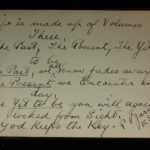 Life is made up of Volumes
Three.
The Past, The Present, The Yet
to be
The Past, we know fades away
The Present we Encounter to
day,
The Yet to be you will agree
Is locked from Sight,
God Keeps the Key -